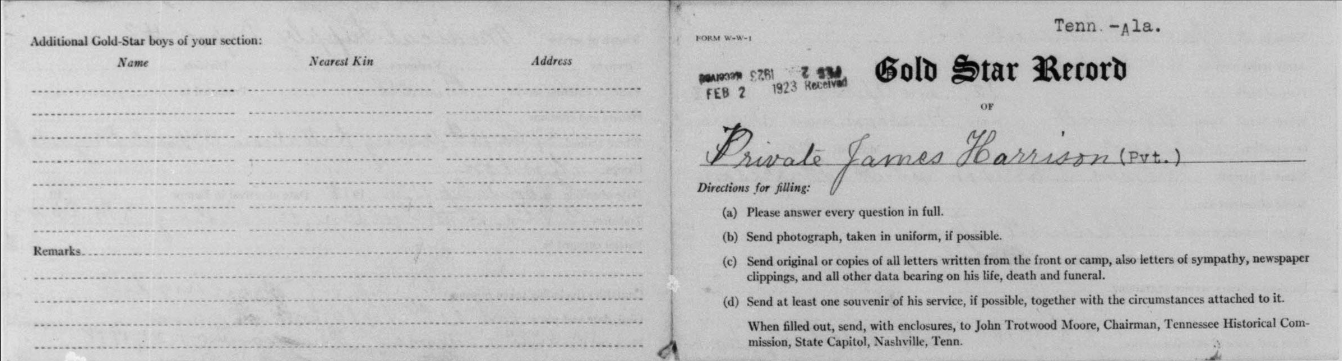 Additional Gold-Star boys of your section:
Name Nearest Kin Address
Remarks
Tenn.-Ala.
FORM W-W-1
FEB 2 1923 Received
Gold Star Record
OF
Private James Harrison (Pvt.)
Directions for filling:
(a) Please answer every question in full.
(b) Send photograph, taken in uniform, if possible.
(c) Send original or copies of all letters written from the front or camp, also letters of sympathy, newspaper
clippings, and all other data bearing on his life, death and funeral.
(d) Send at least one souvenir of his service, if possible, together with the circumstances attached to it.
When filled out, send, with enclosures, to John Trotwood Moore, Chairman, Tennessee Historical Com-
mission, State Capitol, Nashville, Tenn.